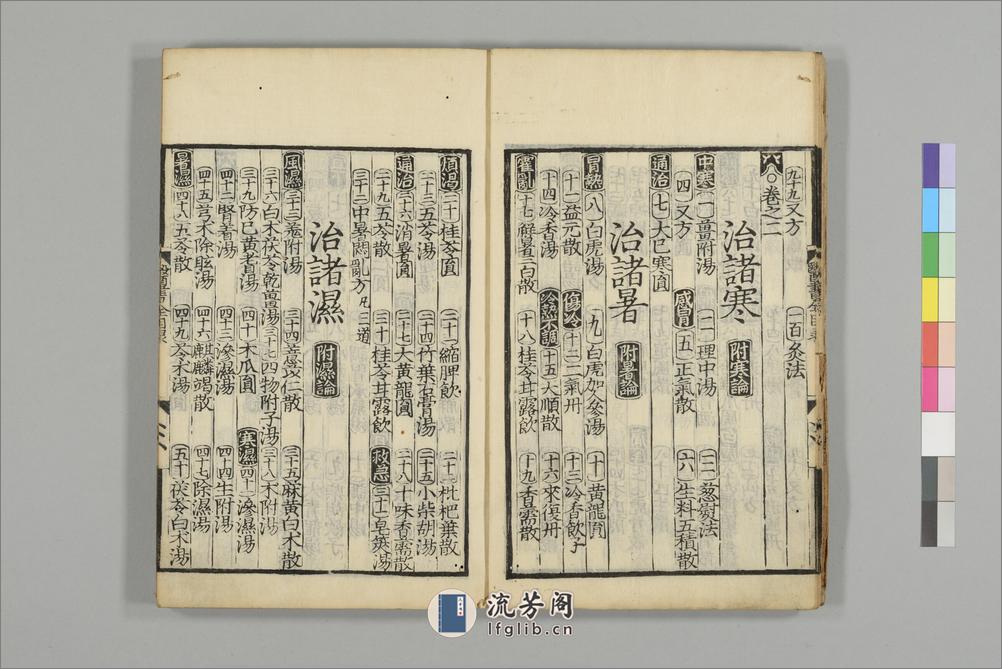 九十九 又方 一百 灸法
○卷之二
治諸寒 附寒論
中寒 一 薑附湯 二 理中湯 三 葱熨法
四 又方 感冒 五 正氣散 六 生料五積散
通治 七 大已寒圓
治諸暑 附暑論
冒熱 八 白虎湯 九 白虎加人參湯 十 黃龍圓
十一 益元散 傷冷 十二 二氣丹 十三 冷香飲子
十四 冷香湯 冷熱不調 十五 大順散 十六 來復丹
霍亂 十七 解暑三白散 十八 桂苓甘露飲 十九 香薷散
煩渴 二十 桂苓圓 二十一 縮脾飲 二十二 枇杷葉散
二十三 五苓湯 二十四 竹葉石膏湯 二十五 小柴胡湯
通治 二十六 消暑圓 二十七 大黃龍圓 二十八 十味香薷散
二十九 五苓散 三十 桂苓甘露飲 救急 三十一 皂莢湯
三十二 中暑悶亂方 凡三道
治諸濕 附濕論
風濕 三十三 卷附湯 三十四 薏苡仁散 三十五 麻黃白术散
三十六 白术茯苓乾薑湯 三十七 四物附子湯 三十八 术附湯
三十九 防已黃耆湯 四十 木瓜圓 寒濕 四十一 滲濕湯
四十二 腎著湯 四十三 滲濕湯 四十四 生附湯
四十五 芎术除眩湯 四十六 麒麟竭散 四十七 除濕湯
暑濕 四十八 五苓散 四十九 苓术湯 五十 茯苓白术湯
流芳阁
lfglib.cn